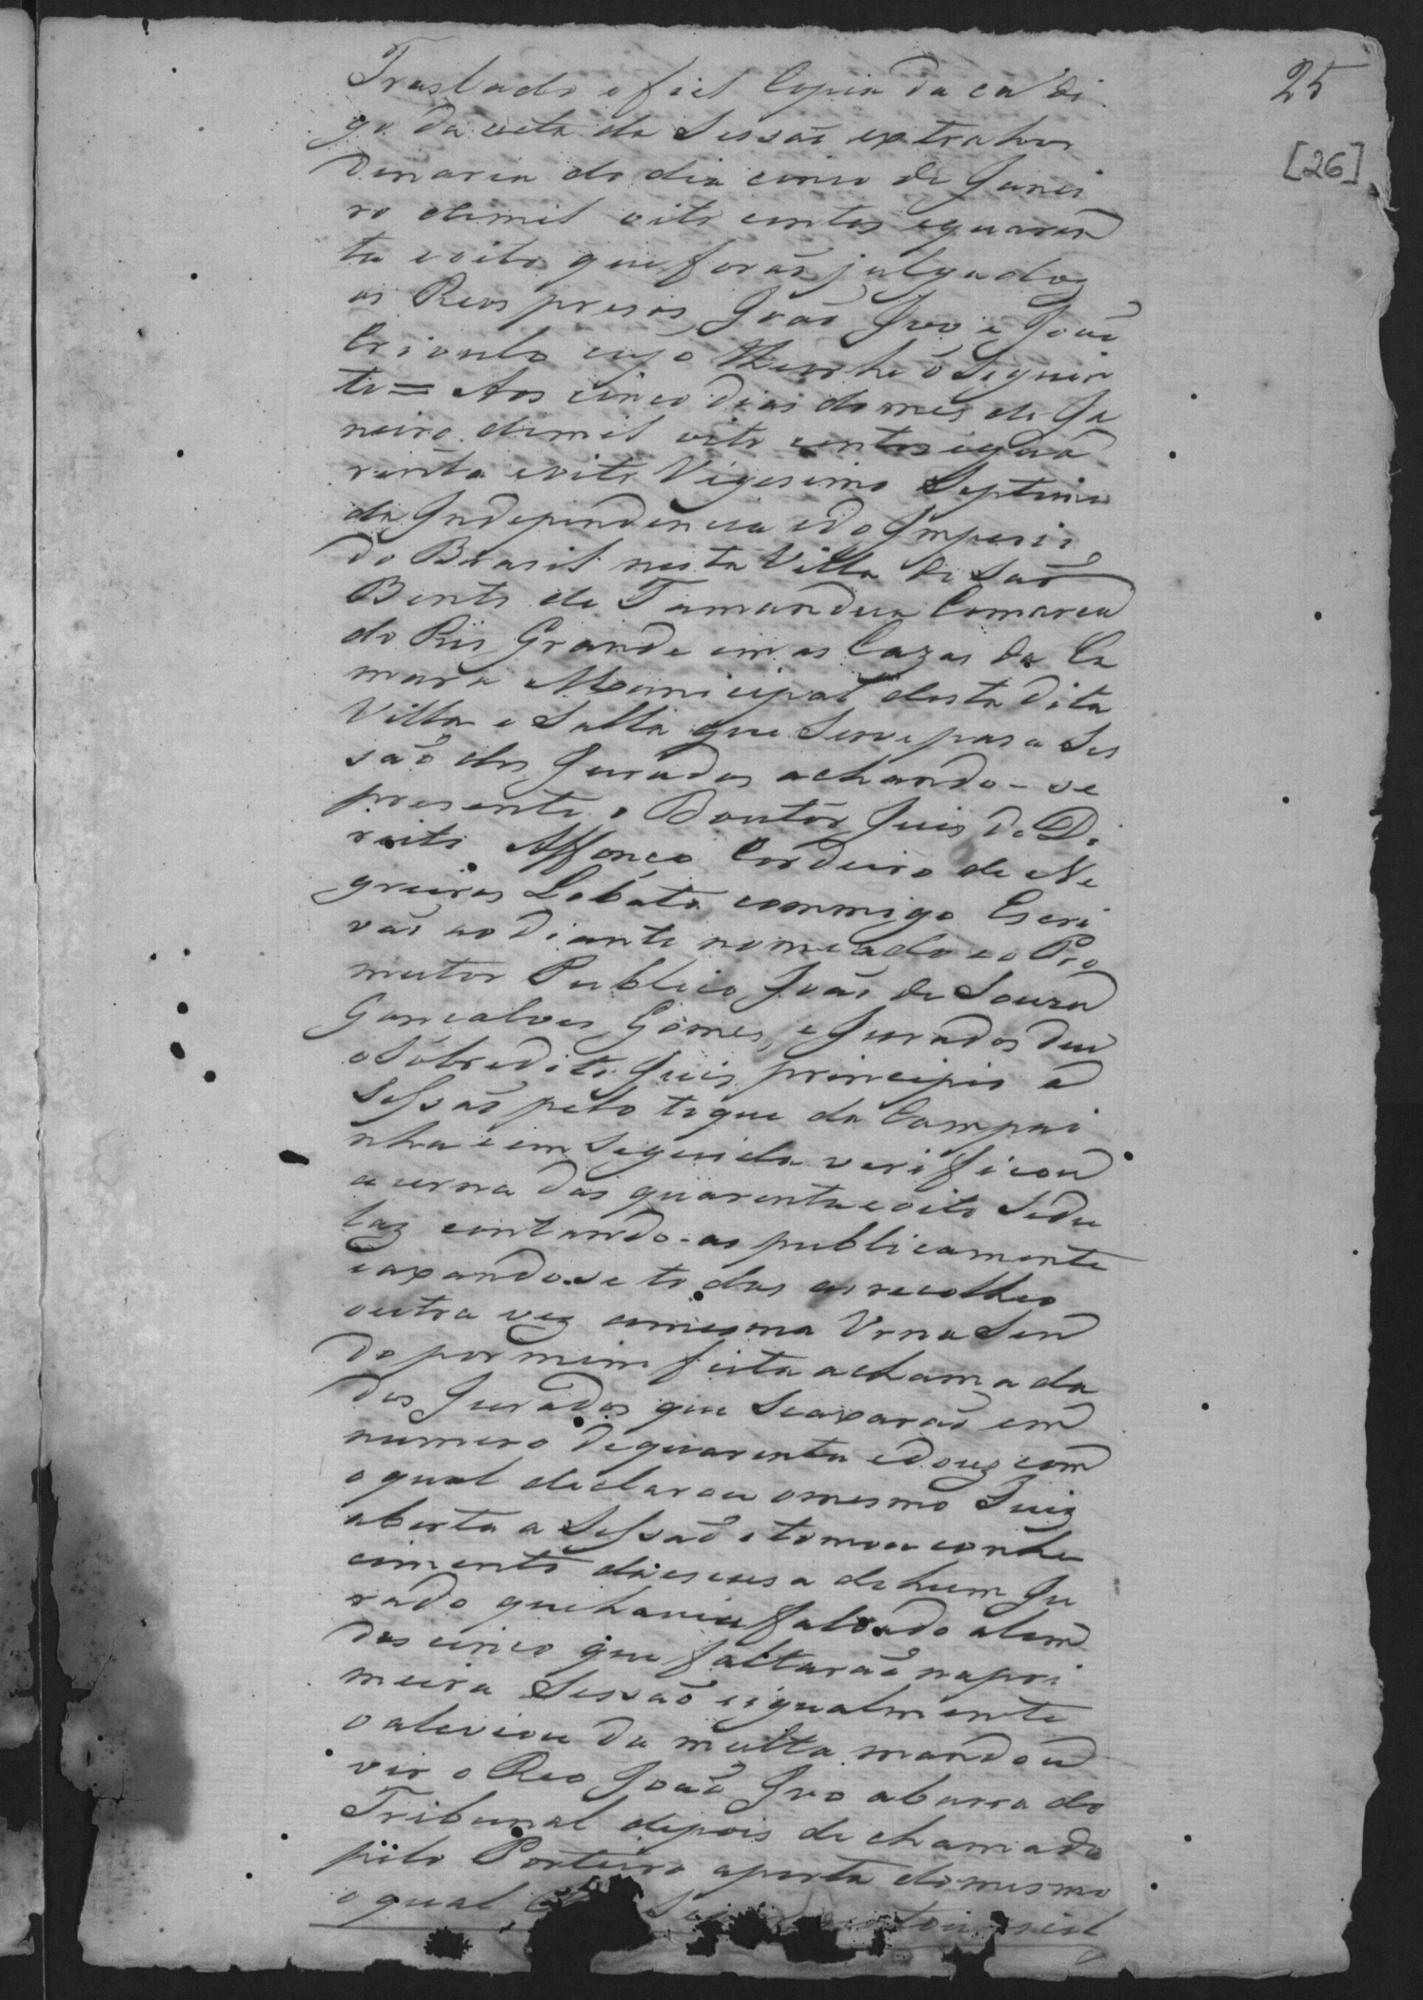 25
[26]
Traslado e fiel Copia da ca di
go da acta da Sessão extrahor
dinaria do dia cinco de Janei
ro demil oito centos e quaren
ta e oito que forão julgados
os Reos presos João Ivo e João
Crioulo cujo theor he o Seguin
te = Aos cinco dias do mes de Ja
neiro demil oito centos e qua
renta e oito Vigesimo Septimo
da Independencia e do Imperio
do Brasil nesta Villa de São
Bento de Tamandua Comarca
do Rio Grande em as Cazas da Ca
mara Municipal desta dita
Villa e Salla que Serve para Ses
são dos Jurados achando-se
presente o Doutor Juis de Di
reito Affonço Cordeiro de Ne
greiros Lobato commigo Escri
vão ao diante nomeado e o Pro
mutor Publico João de Souza
Goncalves Gomes, e Jurados deu
o Sobredito Juis principio á
Sessão pelo toque da Campai
nha e em seguida verificou
a urna das quarenta e oito Sedu
las contando-as publicamente
e axandose todas as recolheo
outra vez amesma Urna Sen
do por mim feita achamada
dos Jurados que Seaxarão em
numero de quarenta e dous com
o qual declarou omesmo Juiz
aberta a Sessão e tomou conhe
cimento da escusa de hum Ju
rado que havia faltado alem
dos cinco que faltarão na pri
meira Sessão e igualmente
o aleviou da multa mandou
vir o Reo João Ivo abarra do
Tribunal depois de chamado
pelo Porteiro aporta domesmo
o qual